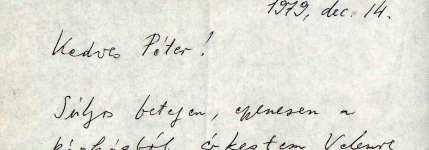 1979, dec. 14.
Kedves Péter!
Súlyos betegen, egyenesen a
kórházból érkestem Velemre